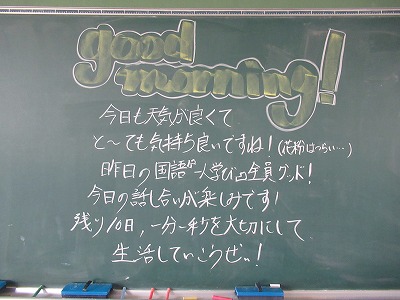 good
morning!
今日も天気が良くて
と〜ても気持ち良いですね！(花粉はつらい…)
昨日の国語 学び 全員グッド！
今日の話し合いが楽しみです！
残り10日，一分一秒を大切にして
生活していこうぜ！